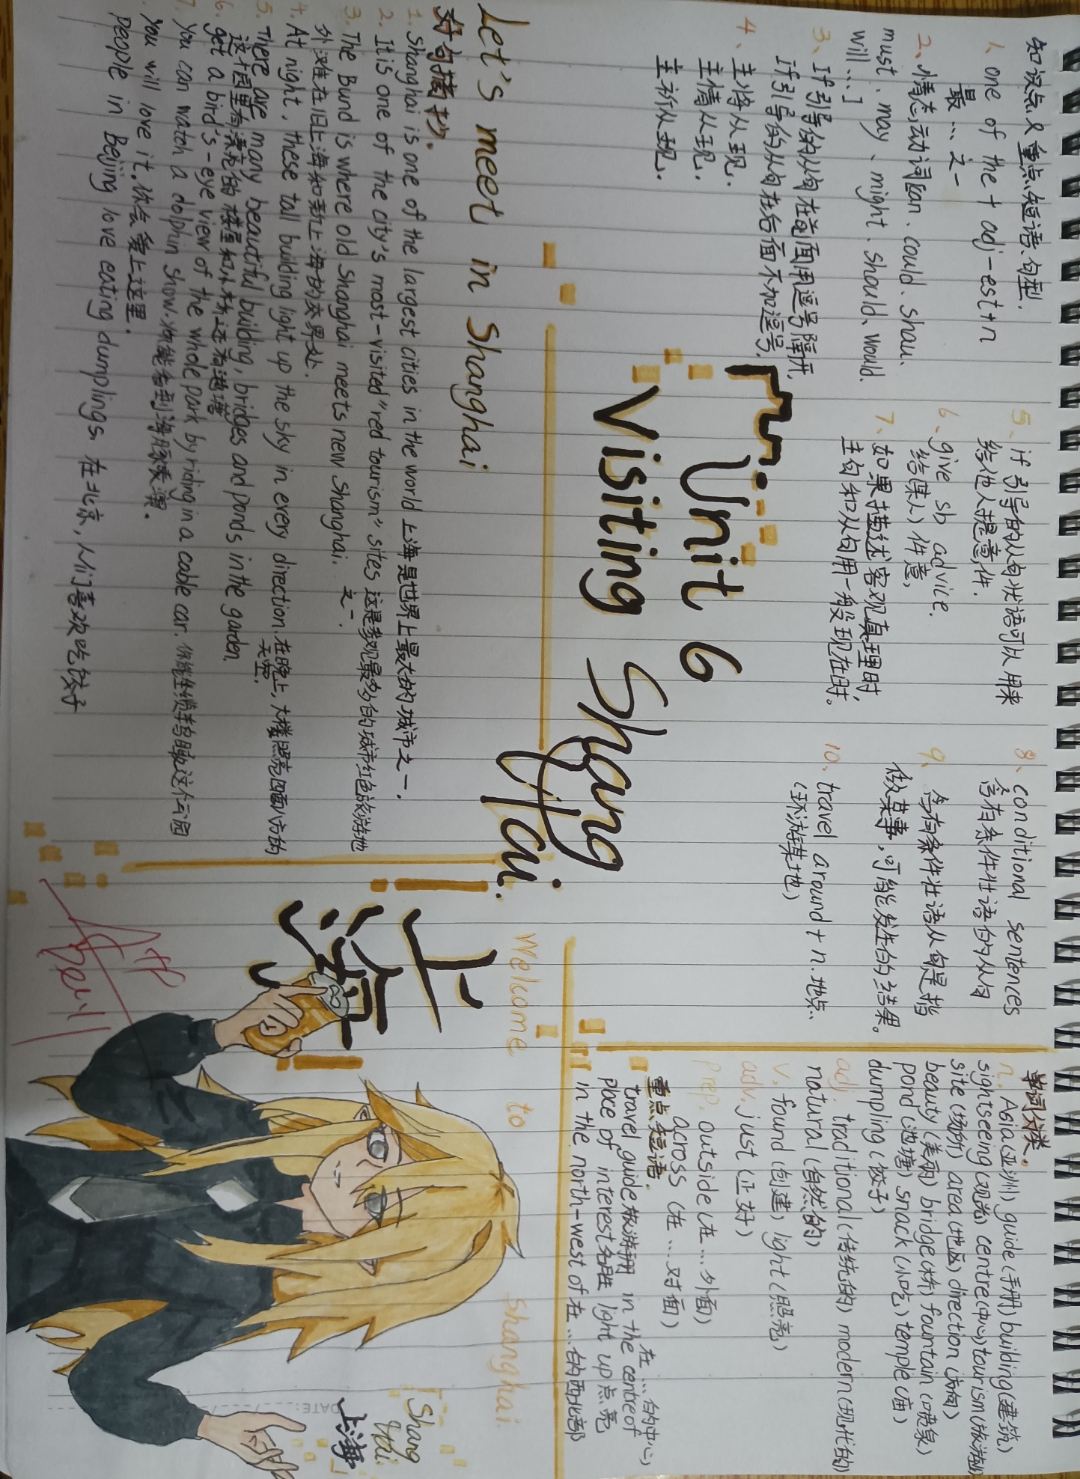 知识点及重点短语、句型.
1. one of the + adj-est+n
最…之一
2、情态动词[can. could. shall.
must. may、might. should、would.
will……]
3、If引导的从句在前面用逗号隔开,
if引导的从句在后面不加逗号.
4、主将从现.
主情从现.
主祈从现.
5、if引导的从句状语可以用来
给他人提意件.
6、give sb advice.
给(某人)件意,
7、如果描述客观真理时
主句和从句用一般现在时.
8、conditional sentences
含有条件壮语的从句
9、含有条件壮语从句是指
做某事,可能发生的结果。
10、travel around + n.地点.
(环游某地)
Unit 6
Visiting Shang
Hai.
单词分类.
n. Asia(亚洲) guide(手册) building(建筑)
sightseeing(观光) centre(中心) tourism(旅游业)
site(场所) area(地区) direction(方向)
beauty(美丽) bridge(桥) fountain(喷泉)
pond(池塘) snack(小吃) temple(庙)
dumpling(饺子)
adj. traditional(传统的) modern(现代的)
natural(自然的)
v. found(创建) light(照亮)
adv. just(正好)
prep. outside(在…外面)
across(在…对面)
重点短语.
travel guide旅游手册 in the centre of 在…的中心
place of interest名胜 light up点亮
in the north-west of在…的西北部
Let's meet in Shanghai
好句摘抄.
1. Shanghai is one of the largest cities in the world 上海是世界上最大的城市之一.
2. It is one of the city's most-visited "red tourism" sites 这是参观最多的城市红色旅游地
之一.
3. The Bund is where old Shanghai meets new Shanghai.
外滩在旧上海和新上海的交界处.
4. At night, these tall building light up the sky in every direction.在晚上,大楼照亮四面八方的
天空.
5. There are many beautiful building, bridges and ponds in the garden.
这个园里有漂亮的楼屋和小桥还有池塘
6. get a bird's-eye view of the whole park by riding in a cable car.
7. You can watch a dolphin show.你能看到海豚表演.
You will love it.你会爱上这里.
people in Beijing love eating dumplings. 在北京,人们喜欢吃饺子
上海
Welcome to Shanghai
Shang
Hai.
上海
DATE: